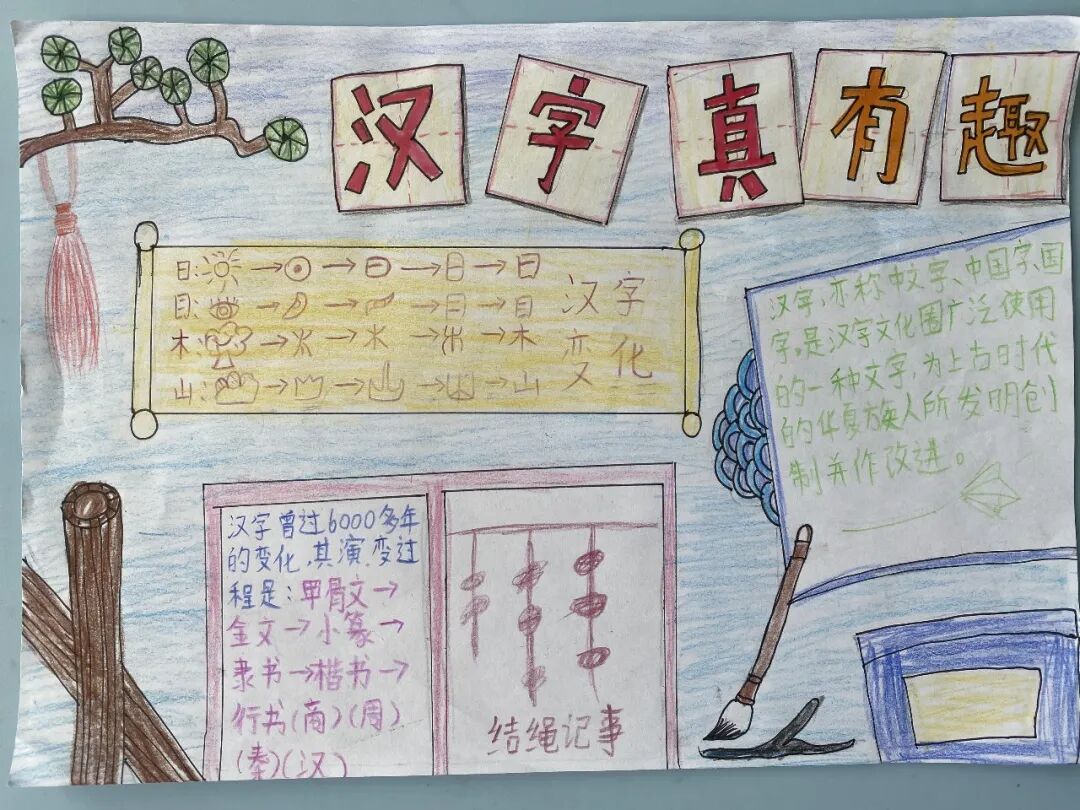 汉字真有趣
日:→→→→日
目:→→→→目
木:→→→→木
山:→→→→山
汉字
变化
汉字,亦称中文字、中国字、国
字,是汉字文化圈广泛使用
的一种文字,为上古时代
的华夏族人所发明创
制并作改进。
汉字曾过6000多年
的变化,其演变过
程是:甲骨文→
金文→小篆→
隶书→楷书→
行书(商)(周)
(秦)(汉)
结绳记事